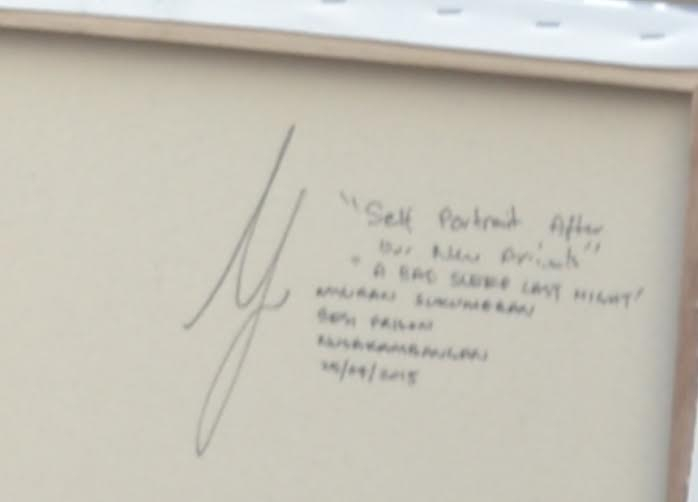 "Self Portrait After
Our New
"A BAD SLEEP LAST NIGHT"
MYURAN SUKUMARAN
BESI PRISON
NUSAKAMBANGAN
25/04/2015